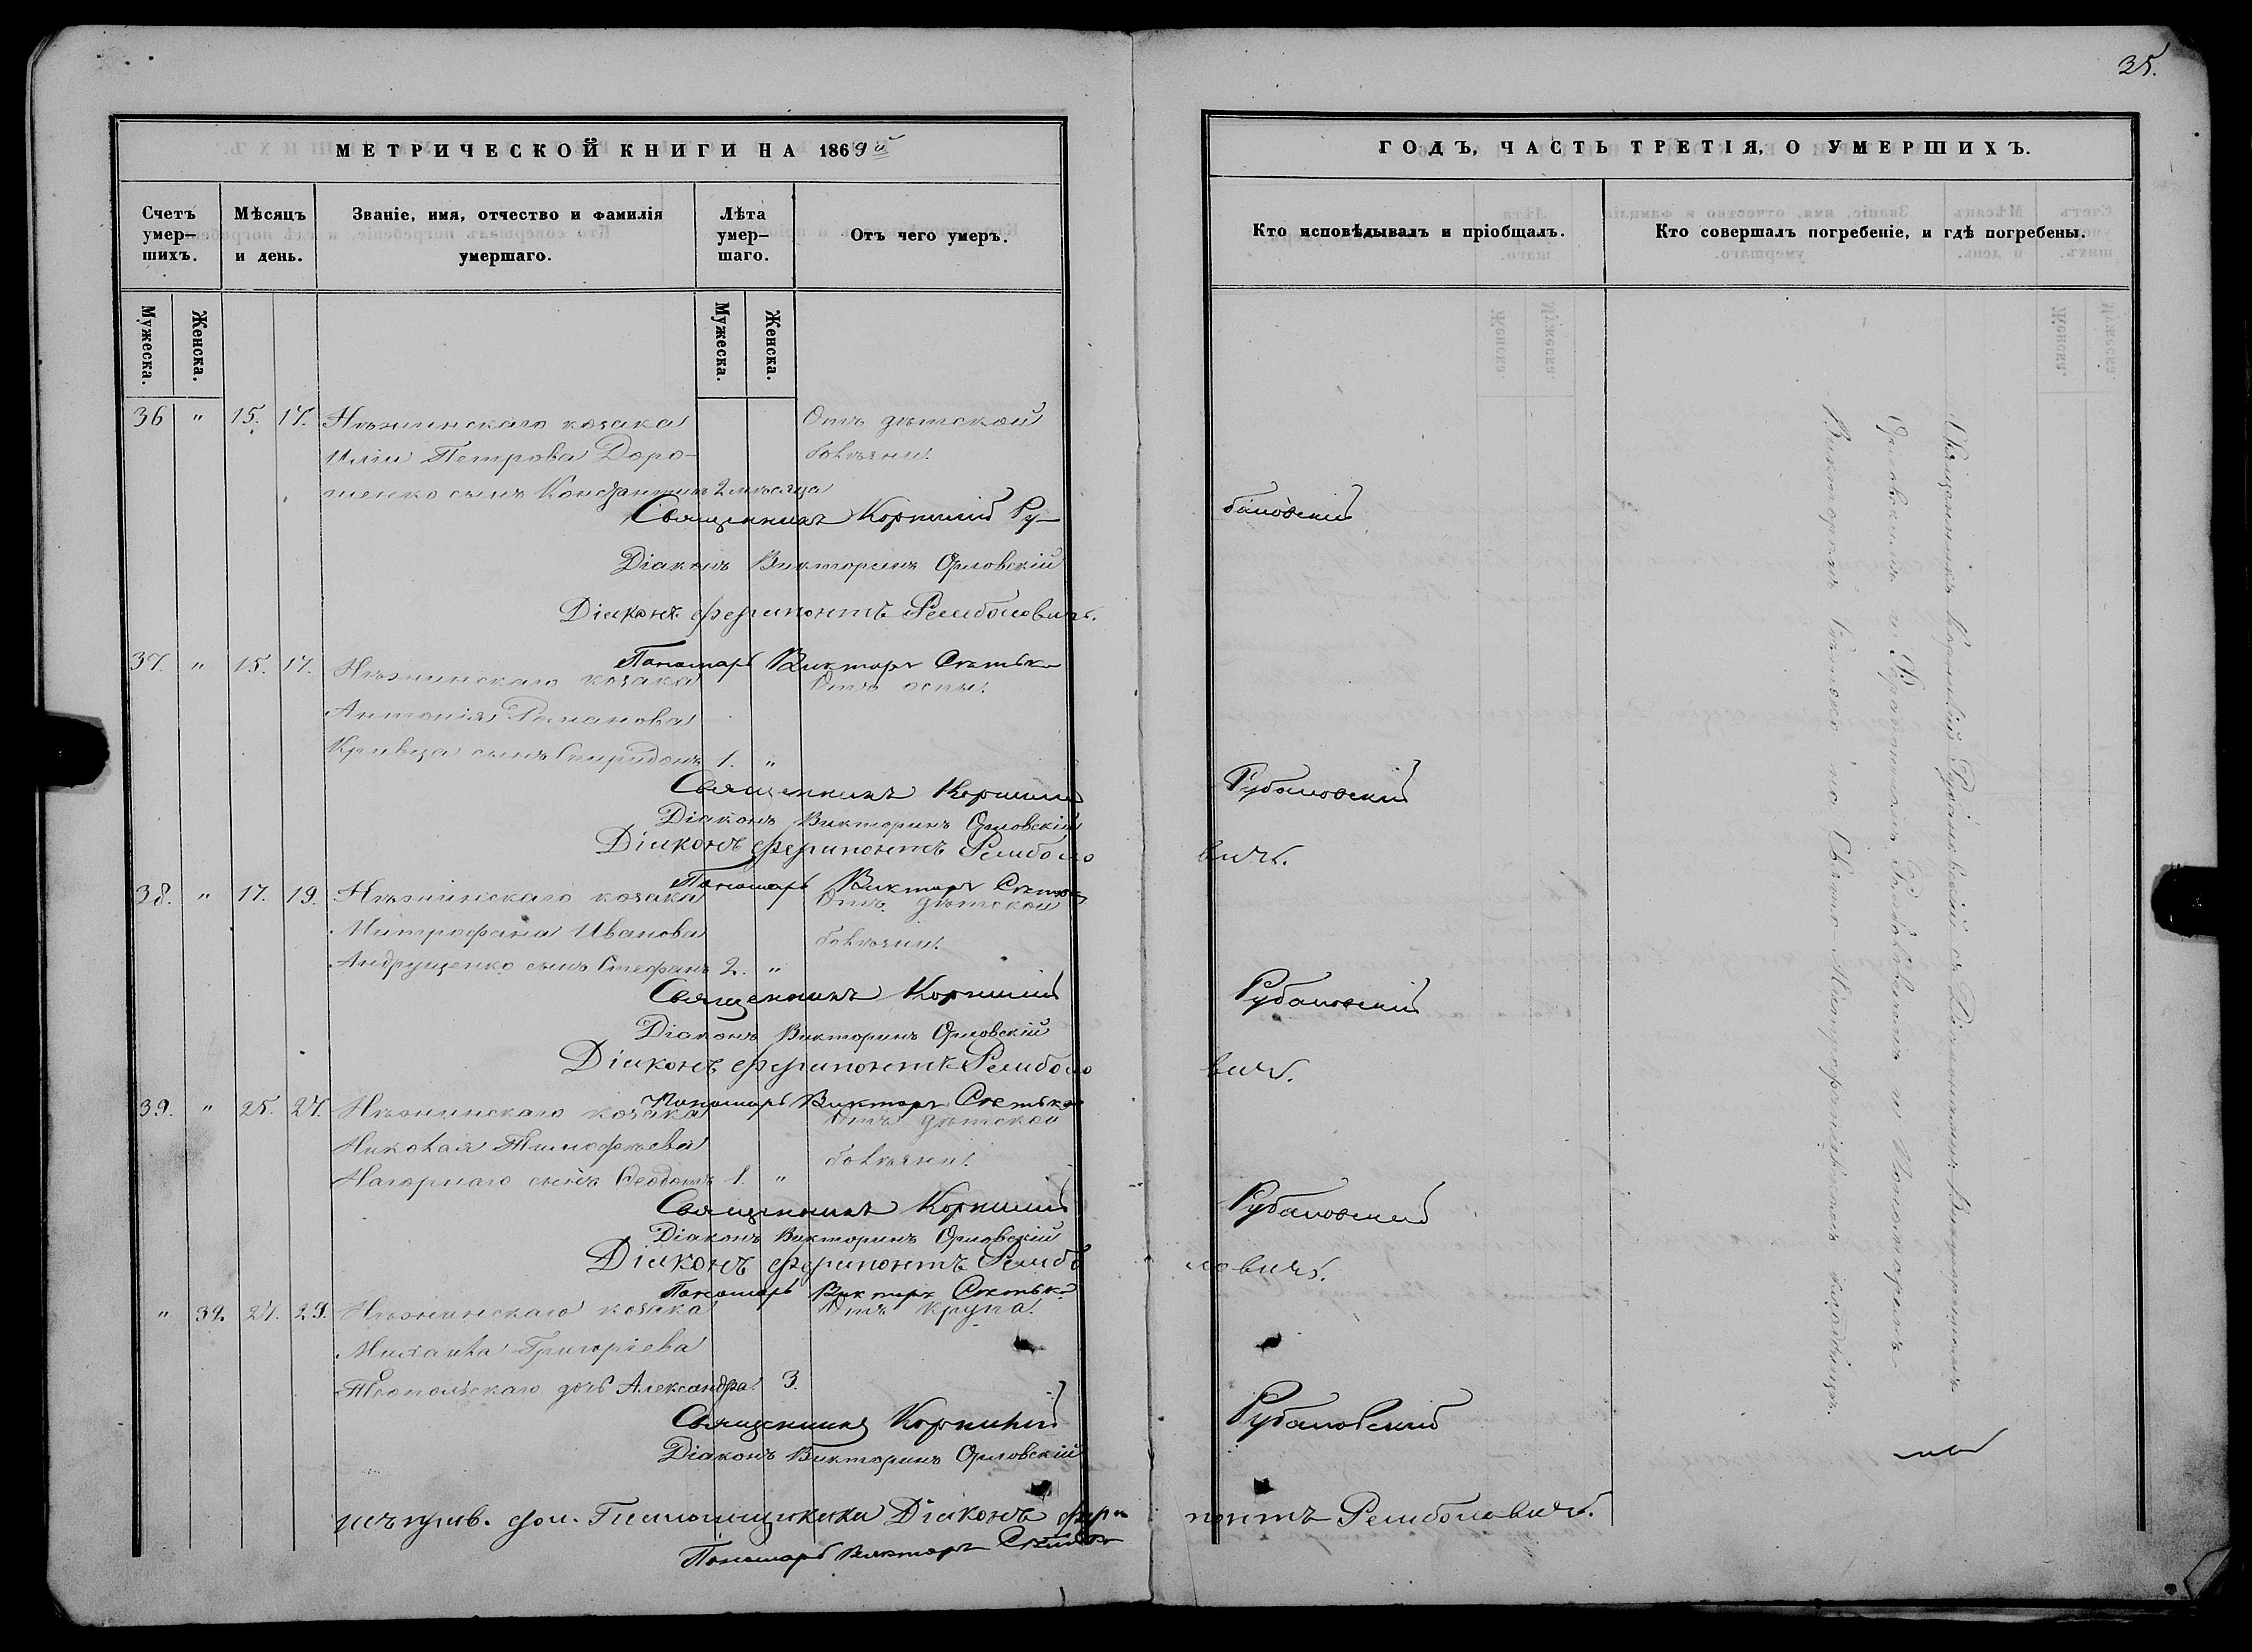 35.
МЕТРИЧЕСКОЙ КНИГИ НА 1869й
ГОДЪ, ЧАСТЬ ТРЕТІЯ, О УМЕРШИХЪ.
Счетъ умер–шихъ.
Мѣсяцъ и день.
Званіе, имя, отчество и фамилія умершаго.
Лѣта умер–шаго.
Отъ чего умеръ.
Кто исповѣдывалъ и пріобщалъ.
Кто совершалъ погребеніе, и гдѣ погребены.
Мужеска.
Женска.
Мужеска.
Женска.
36 " 15. 17. Нѣжинскаго козака Отъ дѣтской
Иліи Петрова Доро- болѣзни.
шенко сынъ Константинъ 2 мѣсяца
Священникъ Корнилій Ру-
бановскій
Діаконъ Викторинъ Орловскій
Діаконъ Ферапонтъ Ремболовичъ.
Пономарь Викторъ Сѣтько
37. " 15. 17. Нѣжинскаго козака Отъ оспы.
Антонія Романова
Кривца сынъ Спиридонъ 1. "
Священникъ Корнилій Рубановскій
Діаконъ Викторинъ Орловскій
Діаконъ Ферапонтъ Ремболо
вичъ.
Пономарь Викторъ Сѣтько
38. " 17. 19. Нѣжинскаго козака Отъ дѣтской
Митрофана Иванова болѣзни.
Андрущенко сынъ Стефанъ 2. "
Священникъ Корнилій Рубановскій
Діаконъ Викторинъ Орловскій
Діаконъ Ферапонтъ Ремболо
вичъ.
Пономарь Викторъ Сѣтько
39. " 25. 27. Нѣжинскаго козака Отъ дѣтской
Николая Тимофѣева болѣзни.
Нагорнаго сынъ Ѳеодотъ 1. "
Священникъ Корнилій Рубановскій
Діаконъ Викторинъ Орловскій
Діаконъ Ферапонтъ Рембо
ловичъ.
Пономарь Викторъ Сѣтько
" 32. 27. 29. Нѣжинскаго козака Отъ крупа.
Михаила Григоріева
дочь Александра. 3.
Священникъ Корнилій Рубановскій
Діаконъ Викторинъ Орловскій
Діаконъ Фера
понтъ Ремболовичъ.
Пономарь Викторъ Сѣтько
Священникъ Корнилій Рубановскій съ Діакономъ Викториномъ
Орловскимъ и Ферапонтомъ Ремболовичемъ и Пономаремъ
Викторомъ Сѣтько на Свято Митрофаніевскомъ кладбищѣ.